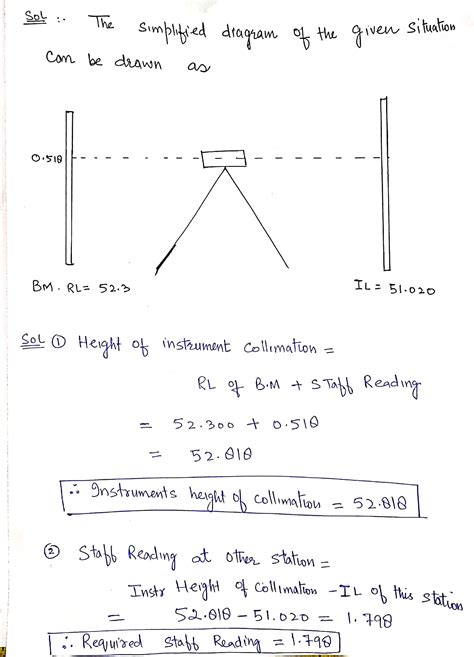 Sol :- The simplified diagram of the given situation
can be drawn as
0.518
BM. RL= 52.3
IL = 51.020
Sol ① Height of instrument collimation =
RL of B.M + STaff Reading
= 52.300 + 0.518
= 52.818
∴ Instruments height of collimation = 52.818
② Staff Reading at other station =
Instr Height of collimation - IL of this station
= 52.818 - 51.020 = 1.798
∴ Required Staff Reading = 1.798